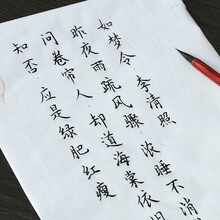 如梦令 李清照
昨夜雨疏风骤 浓睡不消
问卷帘人 却道海棠依
知否 应是绿肥红瘦